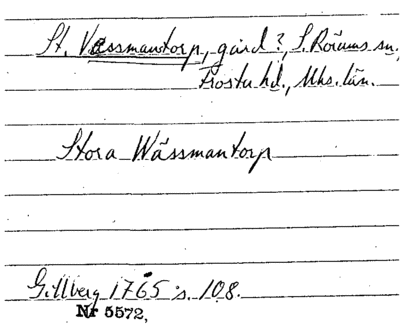 St. Vässmantorp, gård?, S. Rörums sn.,
Frosta hd., Mhs. län.
Stora Wässmantorp
Gillberg 1765 s. 108.
Nr 5572,